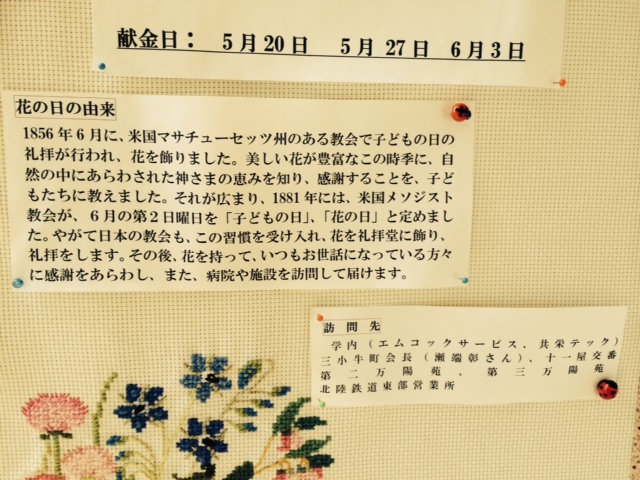 献金日： 5月20日 5月 27日 6月3日
花の日の由来
1856年6月に、米国マサチューセッツ州のある教会で子どもの日の
礼拝が行われ、花を飾りました。美しい花が豊富なこの時季に、自
然の中にあらわされた神さまの恵みを知り、感謝することを、子ど
もたちに教えました。それが広まり、1881年には、米国メソジスト
教会が、6月の第2日曜日を「子どもの日」、「花の日」と定めまし
た。やがて日本の教会も、この習慣を受け入れ、花を礼拝堂に飾り、
礼拝をします。その後、花を持って、いつもお世話になっている方々
に感謝をあらわし、また、病院や施設を訪問して届けます。
訪問先
学内（エムコックサービス、共栄テック）
三小牛町会長（瀬端彰さん）、十一屋交番
第二万陽苑、第三万陽苑
北陸鉄道東部営業所